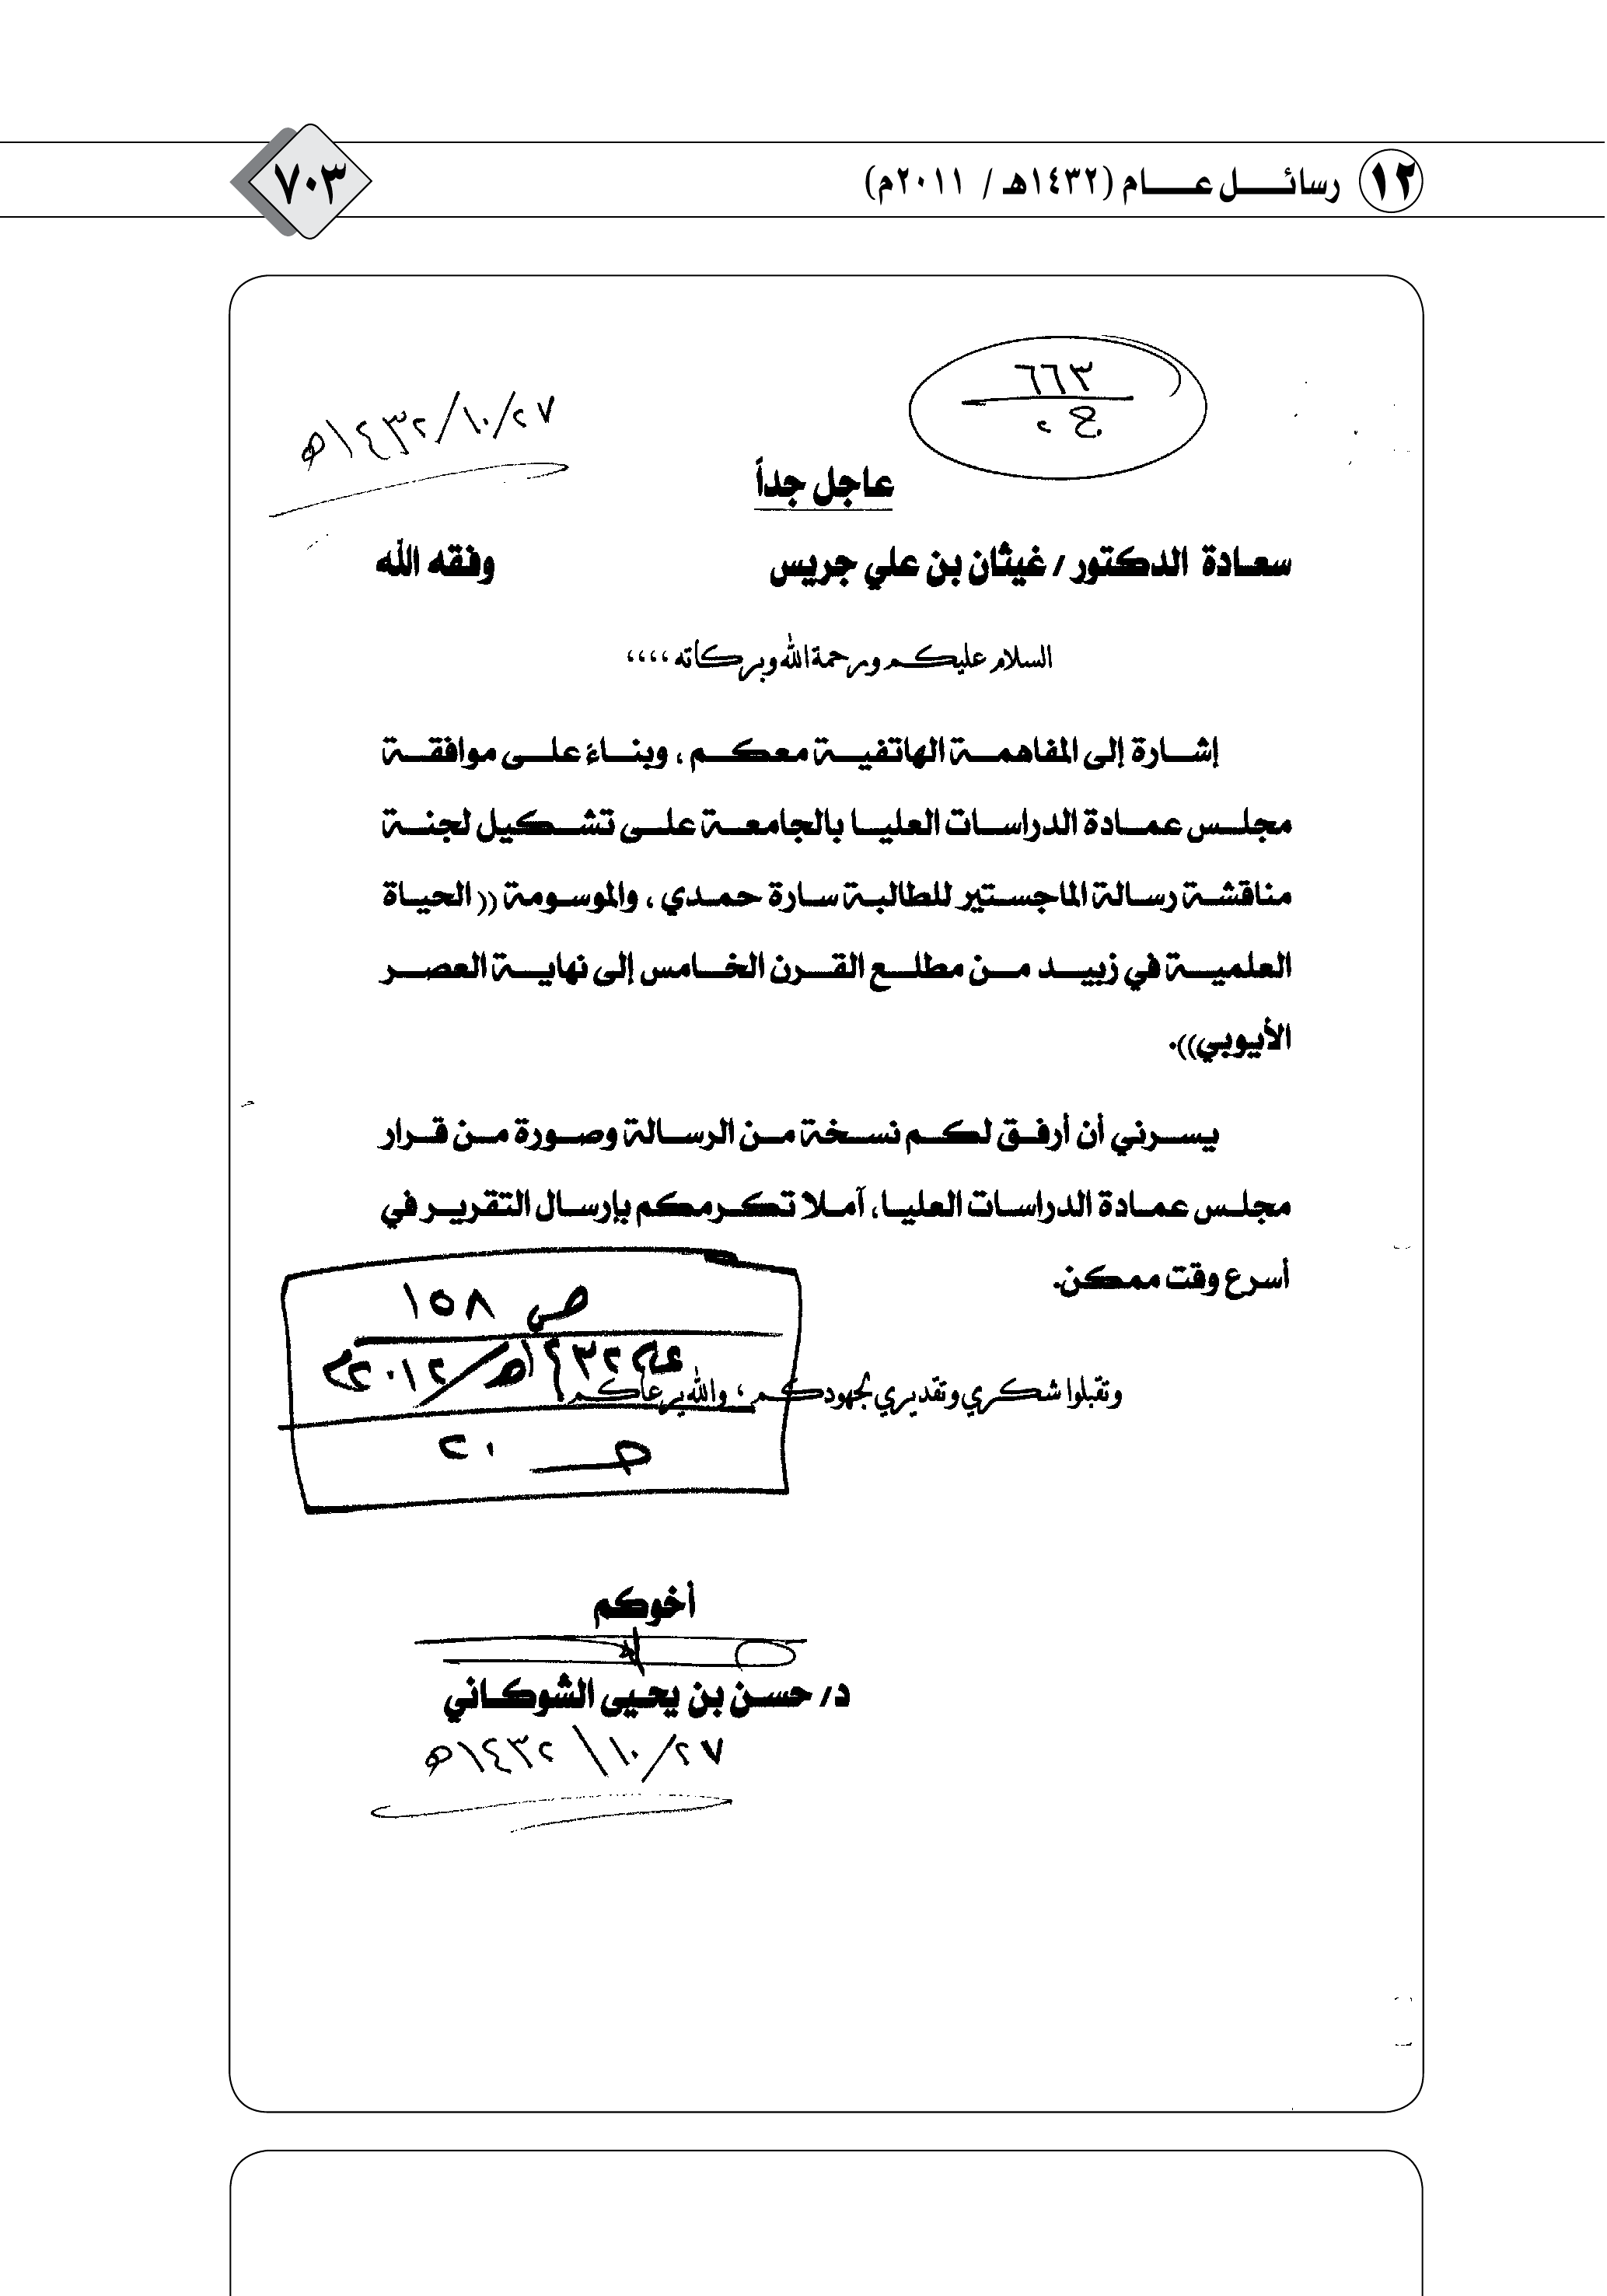 ١٢ رسائل عام (١٤٣٢هـ / ٢٠١١م)
٧٠٣
٦٦٣
ج ٢
١٤٣٢/١٠/٢٧هـ
عاجل جداً
سعادة الدكتور / غيثان بن علي جريس وفقه الله
السلام عليكم ورحمة الله وبركاته ،،،،
إشارة إلى المفاهمة الهاتفية معكم ، وبناءً على موافقة
مجلس عمادة الدراسات العليا بالجامعة على تشكيل لجنة
مناقشة رسالة الماجستير للطالبة سارة حمدي ، والموسومة (( الحياة
العلمية في زبيد من مطلع القرن الخامس إلى نهاية العصر
الأيوبي)).
يسرني أن أرفق لكم نسخة من الرسالة وصورة من قرار
مجلس عمادة الدراسات العليا، آملا تكرمكم بإرسال التقرير في
أسرع وقت ممكن.
ص ١٥٨
١٤٣٢هـ/٢٠١٢م
وتقبلوا شكري وتقديري لجهودكم ؛ والله يرعاكم
ص ٢٠
أخوكم
د/ حسن بن يحيى الشوكاني
١٤٣٢/١٠/٢٧هـ